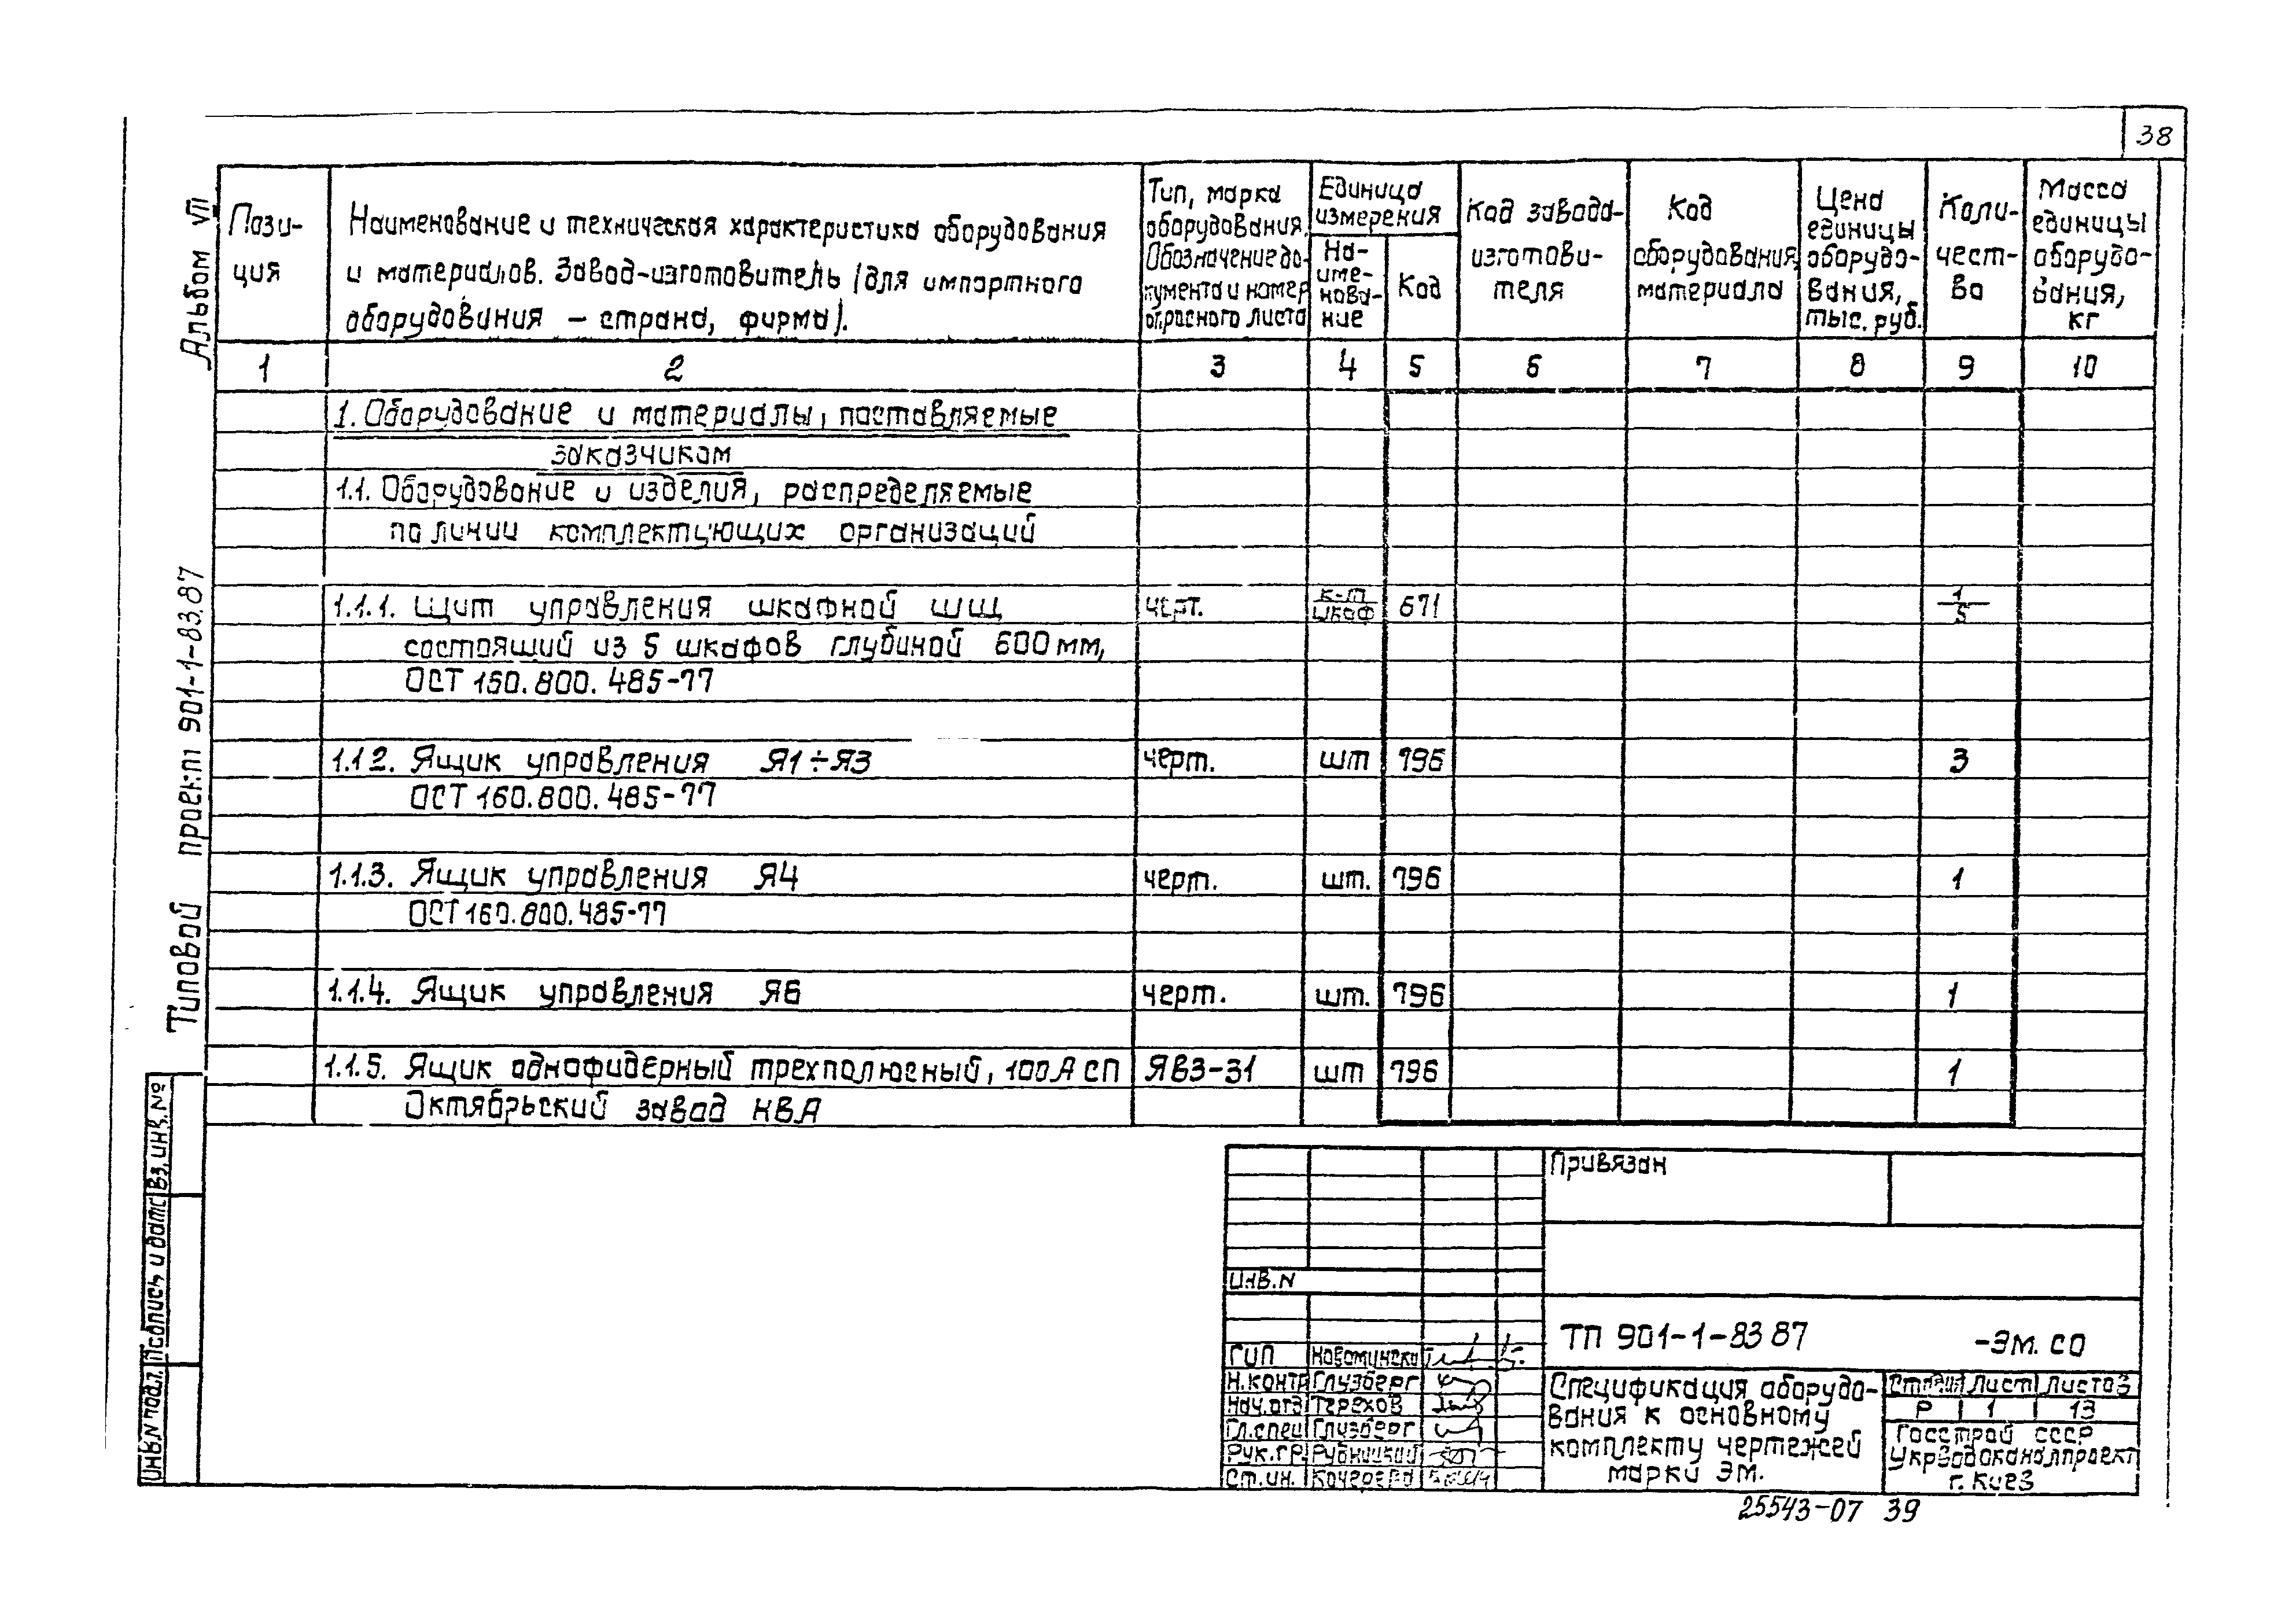 38
Альбом VII
Типовой проект 901-1-83.87
Пози-
ция
Наименование и техническая характеристика оборудования
и материалов. Завод-изготовитель (для импортного
оборудования – страна, фирма).
Тип, марка
оборудования.
Обозначение до-
кумента и номер
опросного листа
Единица
измерения
На-
име-
нова-
ние
Код
Код завода-
изготови-
теля
Код
оборудования,
материала
Цена
единицы
оборудо-
вания,
тыс. руб.
Коли-
чест-
во
Масса
единицы
оборудо-
вания,
кг
1 2 3 4 5 6 7 8 9 10
1. Оборудование и материалы, поставляемые
заказчиком
1.1. Оборудование и изделия, распределяемые
по линии комплектующих организаций
1.1.1. Щит управления шкафной ШЩ черт. к-т/шкаф 671 1/5
состоящий из 5 шкафов глубиной 600 мм,
ОСТ 160.800.485-77
1.1.2. Ящик управления Я1÷Я3 черт. шт 796 3
ОСТ 160.800.485-77
1.1.3. Ящик управления Я4 черт. шт. 796 1
ОСТ 160.800.485-77
1.1.4. Ящик управления Я6 черт. шт. 796 1
1.1.5. Ящик однофидерный трехполюсный, 100А СП ЯВ3-31 шт 796 1
Октябрьский завод НВА
Инв.N подл. Подпись и дата Вз.инв.№
Привязан
Инв.N
ТП 901-1-83 87 -ЭМ.СО
ГИП
Н.контр Глузберг
Нач.отд Терехов
Гл.спец Глузберг
Рук.гр. Рубницкий
Ст.ин.
Спецификация оборудо-
вания к основному
комплекту чертежей
марки ЭМ.
Стадия Лист Листов
Р 1 13
Госстрой СССР
Укрводоканалпроект
г. Киев
25543-07 39